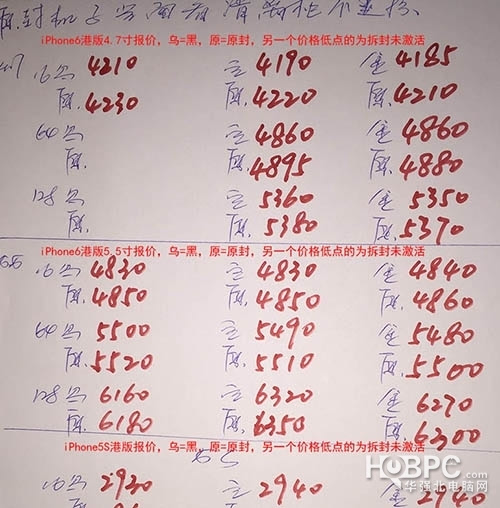 原封机子官网有清的在不退换
iPhone6港版4.7寸报价，乌=黑，原=原封，另一个价格低点的为拆封未激活
4.7 16乌 4210 主 4190 金 4185
原. 4230 原. 4220 原. 4210
64乌 主 4860 金 4860
原. 原. 4895 原. 4880
128乌 主 5360 金 5350
原. 原. 5380 原. 5370
iPhone6港版5.5寸报价，乌=黑，原=原封，另一个价格低点的为拆封未激活
5.5 16乌 4830 主 4830 金 4840
原. 4850 原. 4850 原. 4860
64乌 5500 主 5490 金 5480
原. 5520 原. 5510 原. 5500
128乌 6160 主 6320 金 6270
原. 6180 原. 6350 原. 6300
iPhone5S港版报价，乌=黑，原=原封，另一个价格低点的为拆封未激活
5S
16乌 2930 主 2940 金 2940
HOBPC.com
华强北电脑网